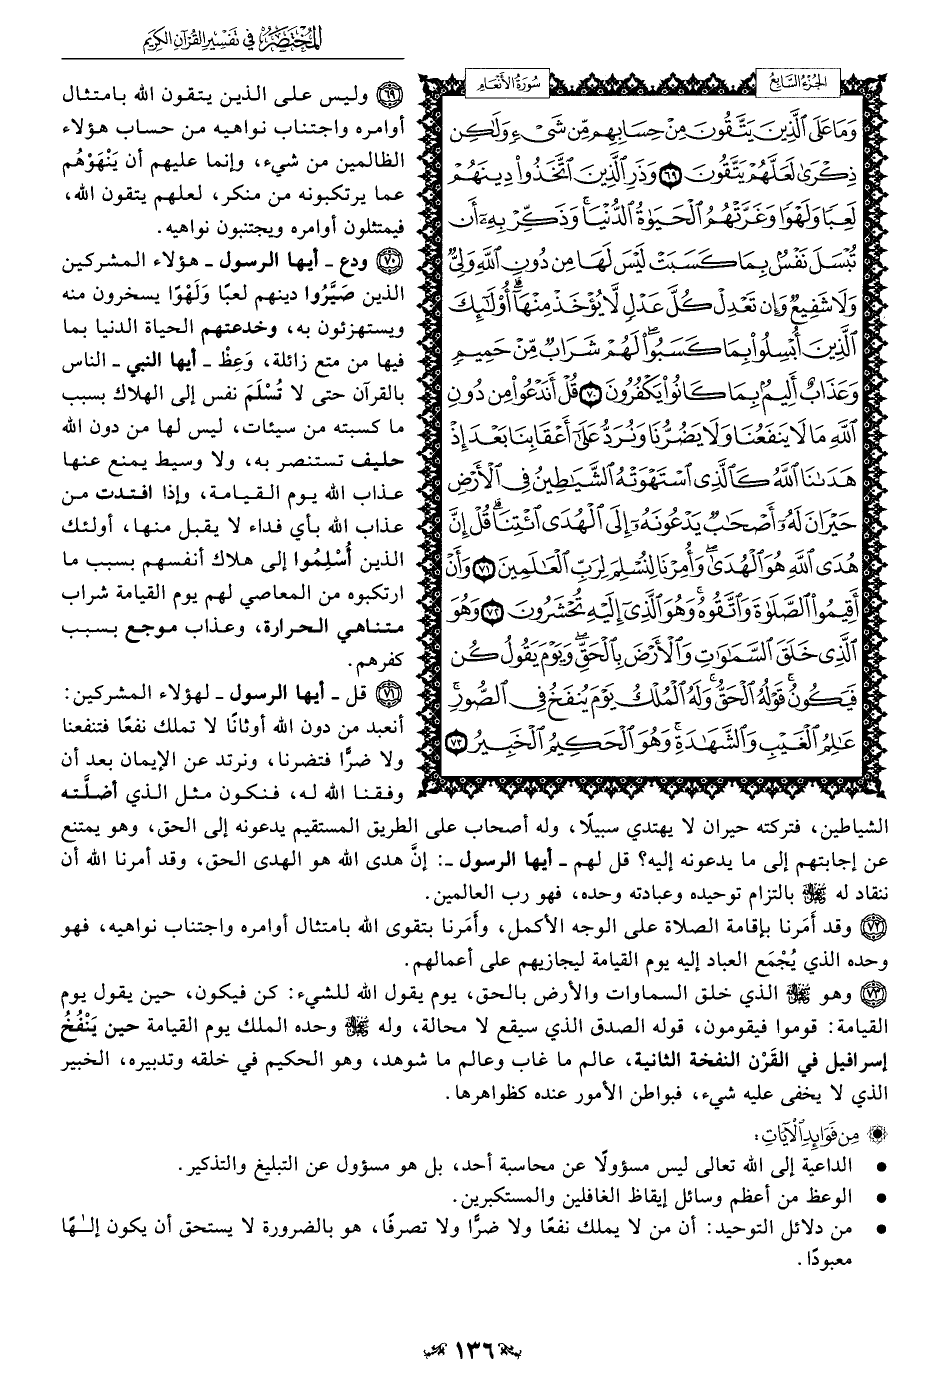 المختصر في تفسير القرآن الكريم
الجزء السابع
سورة الأنعام
وَمَا عَلَى ٱلَّذِينَ يَتَّقُونَ مِنْ حِسَابِهِم مِّن شَىْءٍ وَلَٰكِن
ذِكْرَىٰ لَعَلَّهُمْ يَتَّقُونَ ٦٩ وَذَرِ ٱلَّذِينَ ٱتَّخَذُوا۟ دِينَهُمْ
لَعِبًا وَلَهْوًا وَغَرَّتْهُمُ ٱلْحَيَوٰةُ ٱلدُّنْيَا ۚ وَذَكِّرْ بِهِۦٓ أَن
تُبْسَلَ نَفْسٌۢ بِمَا كَسَبَتْ لَيْسَ لَهَا مِن دُونِ ٱللَّهِ وَلِىٌّ
وَلَا شَفِيعٌ وَإِن تَعْدِلْ كُلَّ عَدْلٍ لَّا يُؤْخَذْ مِنْهَآ ۗ أُو۟لَٰٓئِكَ
ٱلَّذِينَ أُبْسِلُوا۟ بِمَا كَسَبُوا۟ ۖ لَهُمْ شَرَابٌ مِّنْ حَمِيمٍ
وَعَذَابٌ أَلِيمٌۢ بِمَا كَانُوا۟ يَكْفُرُونَ ٧٠ قُلْ أَنَدْعُوا۟ مِن دُونِ
ٱللَّهِ مَا لَا يَنفَعُنَا وَلَا يَضُرُّنَا وَنُرَدُّ عَلَىٰٓ أَعْقَابِنَا بَعْدَ إِذْ
هَدَىٰنَا ٱللَّهُ كَٱلَّذِى ٱسْتَهْوَتْهُ ٱلشَّيَٰطِينُ فِى ٱلْأَرْضِ
حَيْرَانَ لَهُۥٓ أَصْحَٰبٌ يَدْعُونَهُۥٓ إِلَى ٱلْهُدَى ٱئْتِنَا ۗ قُلْ إِنَّ
هُدَى ٱللَّهِ هُوَ ٱلْهُدَىٰ ۖ وَأُمِرْنَا لِنُسْلِمَ لِرَبِّ ٱلْعَٰلَمِينَ ٧١ وَأَنْ
أَقِيمُوا۟ ٱلصَّلَوٰةَ وَٱتَّقُوهُ ۚ وَهُوَ ٱلَّذِىٓ إِلَيْهِ تُحْشَرُونَ ٧٢ وَهُوَ
ٱلَّذِى خَلَقَ ٱلسَّمَٰوَٰتِ وَٱلْأَرْضَ بِٱلْحَقِّ ۖ وَيَوْمَ يَقُولُ كُن
فَيَكُونُ ۚ قَوْلُهُ ٱلْحَقُّ ۚ وَلَهُ ٱلْمُلْكُ يَوْمَ يُنفَخُ فِى ٱلصُّورِ ۚ
عَٰلِمُ ٱلْغَيْبِ وَٱلشَّهَٰدَةِ ۚ وَهُوَ ٱلْحَكِيمُ ٱلْخَبِيرُ ٧٣
٦٩ وليس على الذين يتقون الله بامتثال
أوامره واجتناب نواهيه من حساب هؤلاء
الظالمين من شيء، وإنما عليهم أن يَنْهَوْهُم
عما يرتكبونه من منكر، لعلهم يتقون الله،
فيمتثلون أوامره ويجتنبون نواهيه.
٧٠ ودع ـ أيها الرسول ـ هؤلاء المشركين
الذين صَيَّرُوا دينهم لعبًا وَلَهْوًا يسخرون منه
ويستهزئون به، وخدعتهم الحياة الدنيا بما
فيها من متع زائلة، وَعِظْ ـ أيها النبي ـ الناس
بالقرآن حتى لا تُسْلَمَ نفس إلى الهلاك بسبب
ما كسبته من سيئات، ليس لها من دون الله
حليف تستنصر به، ولا وسيط يمنع عنها
عذاب الله يوم القيامة، وإذا افتدت من
عذاب الله بأي فداء لا يقبل منها، أولئك
الذين أُسْلِمُوا إلى هلاك أنفسهم بسبب ما
ارتكبوه من المعاصي لهم يوم القيامة شراب
متناهي الحرارة، وعذاب موجع بسبب
كفرهم.
٧١ قل ـ أيها الرسول ـ لهؤلاء المشركين:
أنعبد من دون الله أوثانًا لا تملك نفعًا فتنفعنا
ولا ضرًّا فتضرنا، ونرتد عن الإيمان بعد أن
وفقنا الله له، فنكون مثل الذي أضلَّته
الشياطين، فتركته حيران لا يهتدي سبيلًا، وله أصحاب على الطريق المستقيم يدعونه إلى الحق، وهو يمتنع
عن إجابتهم إلى ما يدعونه إليه؟ قل لهم ـ أيها الرسول ـ: إنَّ هدى الله هو الهدى الحق، وقد أمرنا الله أن
ننقاد له ﷻ بالتزام توحيده وعبادته وحده، فهو رب العالمين.
٧٢ وقد أَمَرنا بإقامة الصلاة على الوجه الأكمل، وأَمَرنا بتقوى الله بامتثال أوامره واجتناب نواهيه، فهو
وحده الذي يُجْمَع العباد إليه يوم القيامة ليجازيهم على أعمالهم.
٧٣ وهو ﷻ الذي خلق السماوات والأرض بالحق، يوم يقول الله للشيء: كن فيكون، حين يقول يوم
القيامة: قوموا فيقومون، قوله الصدق الذي سيقع لا محالة، وله ﷻ وحده الملك يوم القيامة حين يَنْفُخُ
إسرافيل في القَرْن النفخة الثانية، عالم ما غاب وعالم ما شوهد، وهو الحكيم في خلقه وتدبيره، الخبير
الذي لا يخفى عليه شيء، فبواطن الأمور عنده كظواهرها.
من فوائد الآيات:
• الداعية إلى الله تعالى ليس مسؤولًا عن محاسبة أحد، بل هو مسؤول عن التبليغ والتذكير.
• الوعظ من أعظم وسائل إيقاظ الغافلين والمستكبرين.
• من دلائل التوحيد: أن من لا يملك نفعًا ولا ضرًّا ولا تصرفًا، هو بالضرورة لا يستحق أن يكون إلـٰهًا
معبودًا.
١٣٦